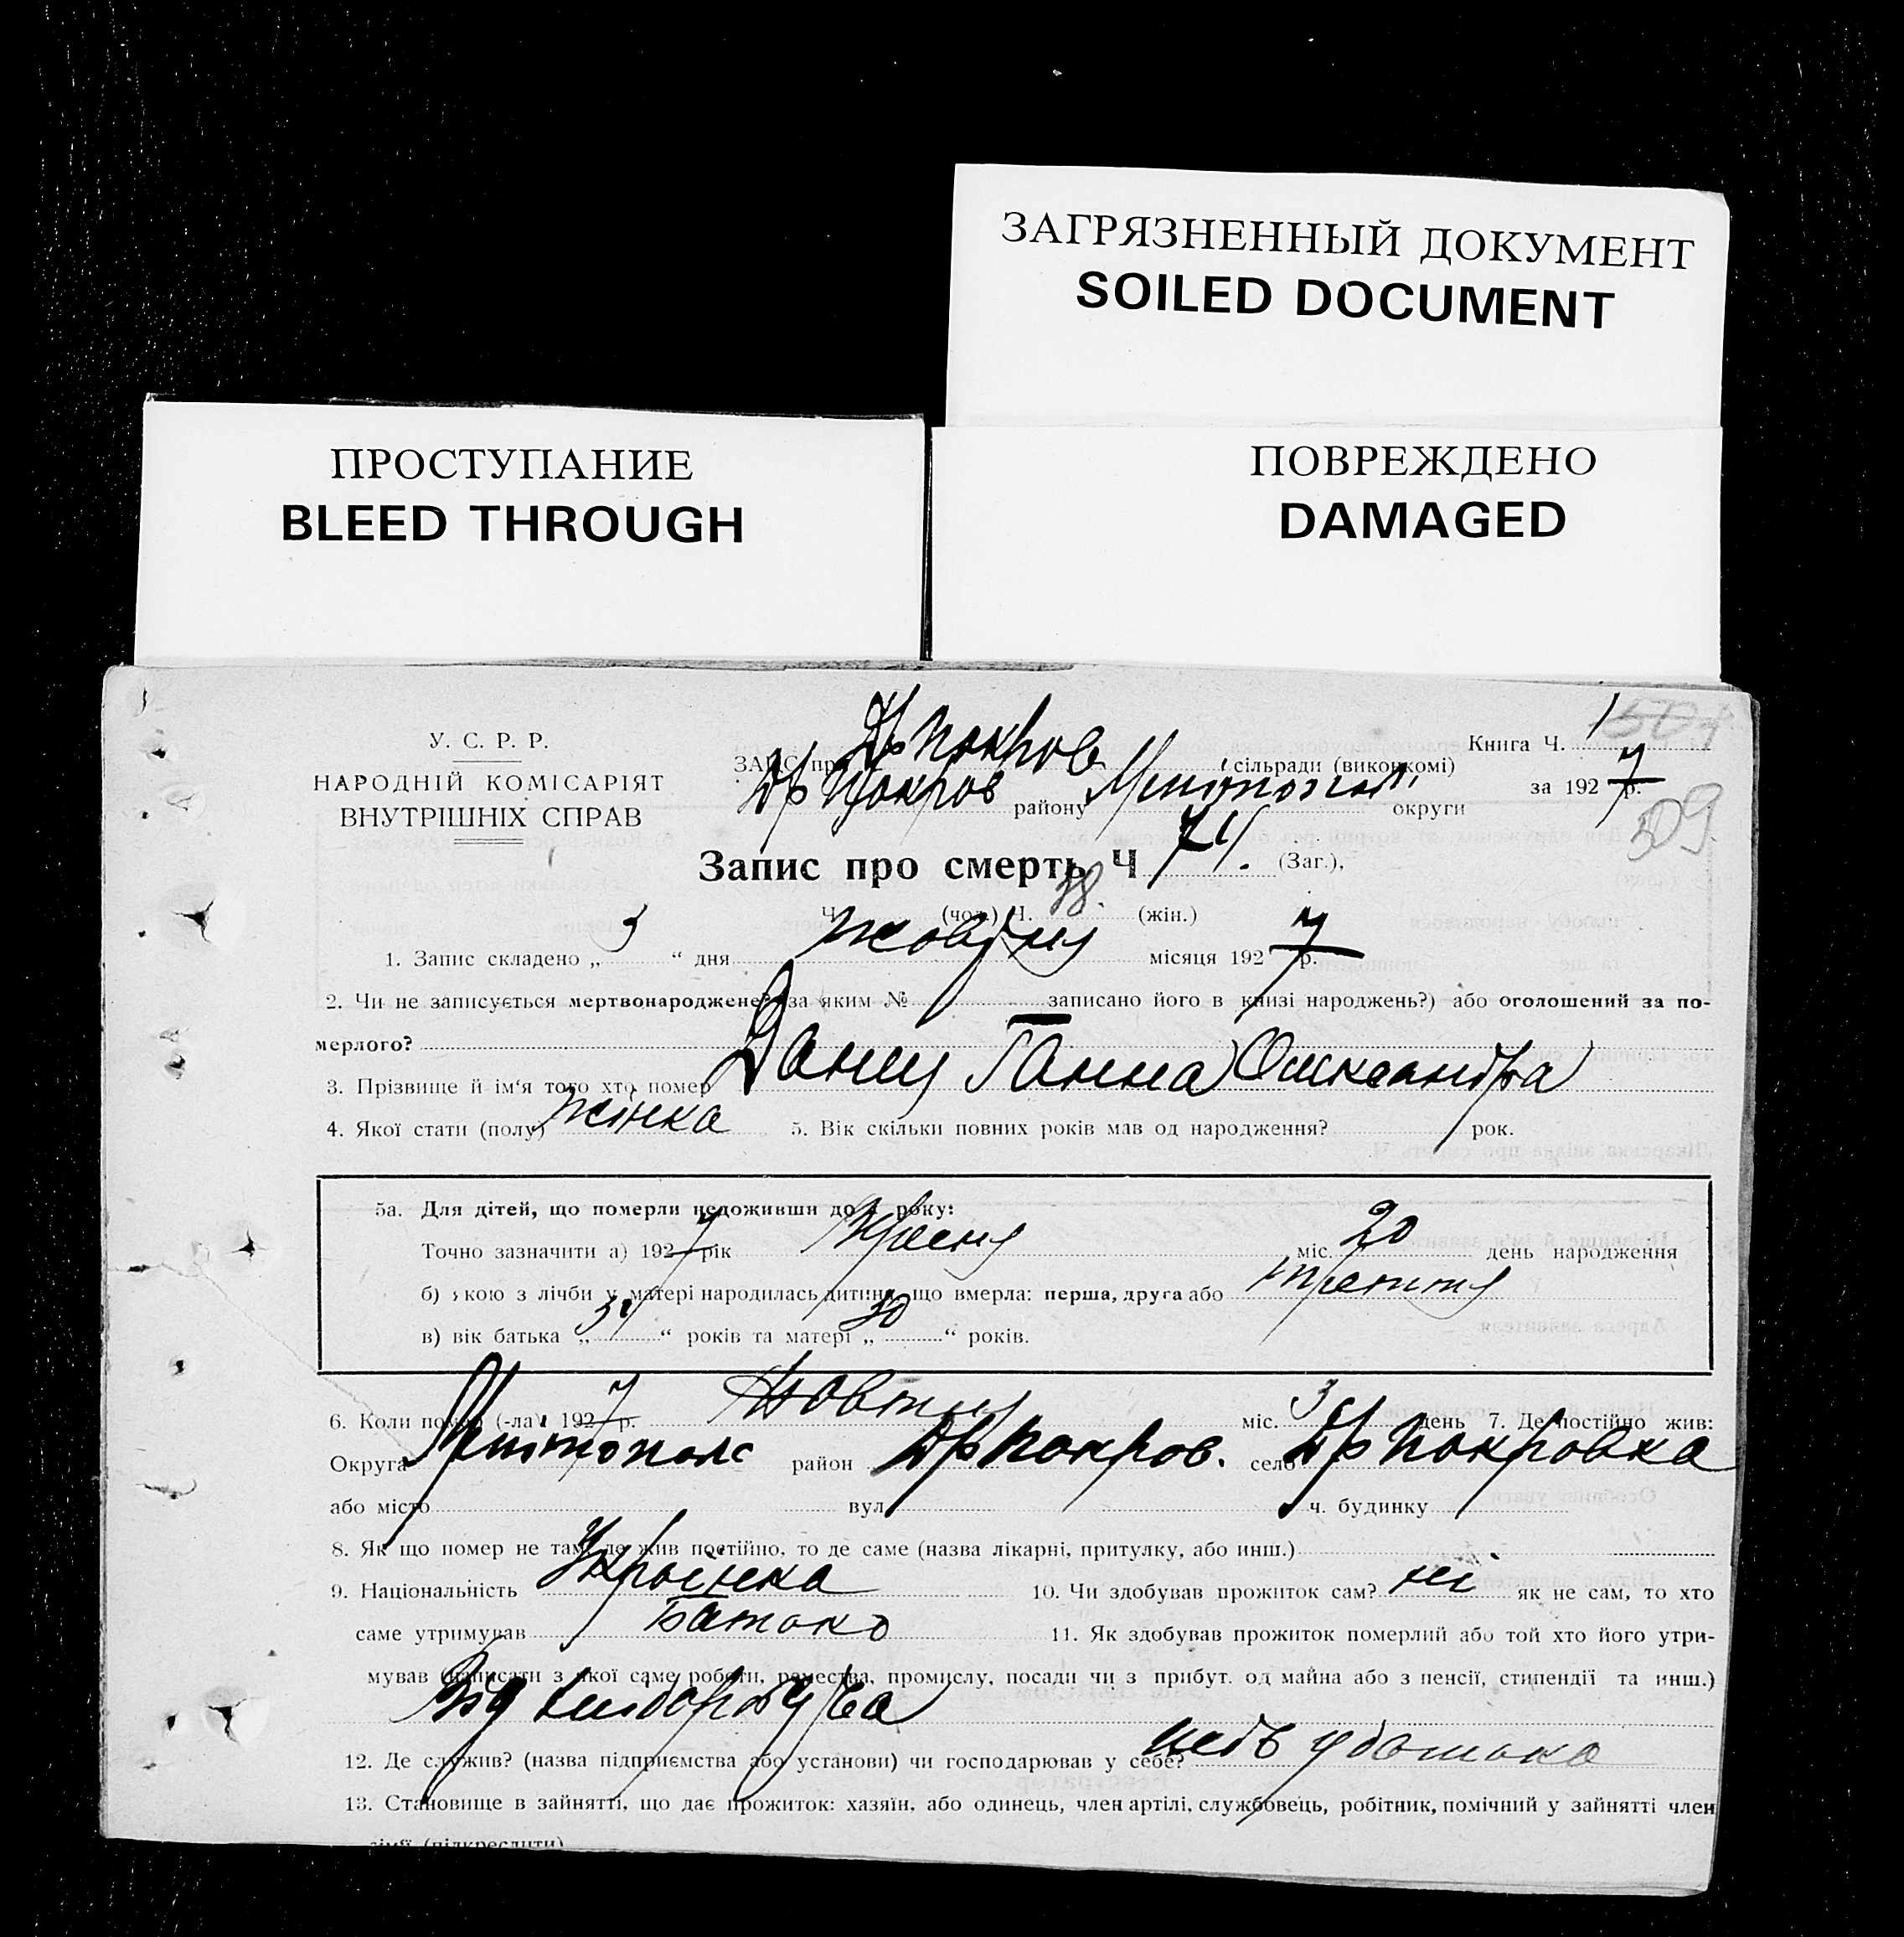 ЗАГРЯЗНЕННЫЙ ДОКУМЕНТ
SOILED DOCUMENT
ПРОСТУПАНИЕ
BLEED THROUGH
ПОВРЕЖДЕНО
DAMAGED
У. С. Р. Р.
НАРОДНІЙ КОМІСАРІЯТ
ВНУТРІШНІХ СПРАВ
Др Покров сільради (виконкомі)
Др Покров району округи
Книга Ч. 1
за 1927 р.
309
Запис про смерть Ч 74. (Заг.),
Ч. (чол.) Ч. 38. (жін.)
1. Запис складено „ 3 “ дня жовтня місяця 1927 р.
2. Чи не записується мертвонароджене? за яким № записано його в книзі народжень?) або оголошений за по-
мерлого?
3. Прізвище й ім'я того хто помер Ганна Олександра
4. Якої стати (полу) жінка 5. Вік скільки повних років мав од народження? рок.
5а. Для дітей, що померли недоживши до 1 року:
Точно зазначити а) 1927 рік міс. 20 день народження
б) якою з лічби у матері народилась дитина, що вмерла: перша, друга або третя
в) вік батька „ “ років та матері „ 30 “ років.
6. Коли помер (-ла) 1927 р. Жовтня міс. 3 день 7. Де постійно жив:
Округа район Др Покров. село Др Покровка
або місто вул ч. будинку
8. Як що помер не там, де жив постійно, то де саме (назва лікарні, притулку, або инш.)
9. Національність Українка 10. Чи здобував прожиток сам? ні як не сам, то хто
саме утримував Батько 11. Як здобував прожиток померлий або той хто його утри-
мував (написати з якої саме роботи, ремества, промислу, посади чи з прибут. од майна або з пенсії, стипендії та инш.)
Від хліборобства
12. Де служив? (назва підприємства або установи) чи господарював у себе? у батька
13. Становище в зайнятті, що дає прожиток: хазяїн, або одинець, член артілі, службовець, робітник, помічний у зайнятті член
сімї (підкреслити)